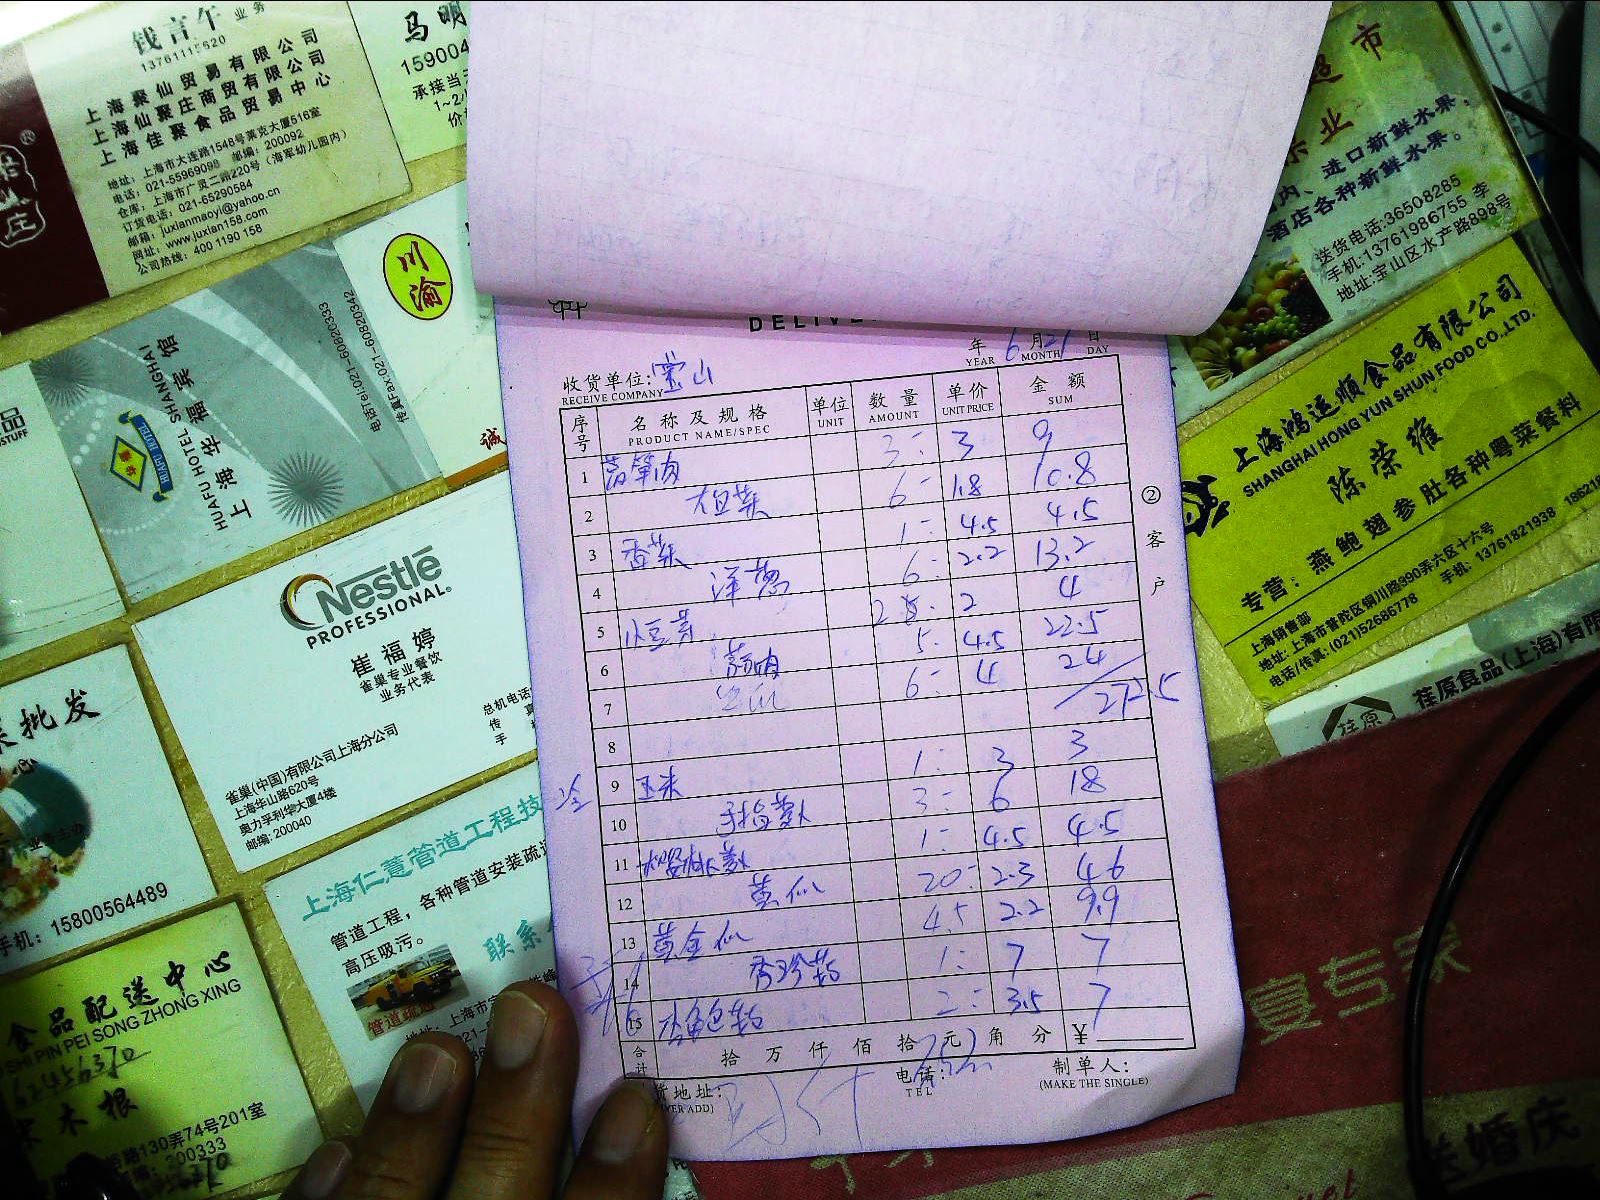 钱言午 业务
13761115520
上海聚仙贸易有限公司
上海仙聚庄商贸有限公司
上海佳聚食品贸易中心
地址：上海市大连路1548号莱克大厦516室
电话：021-55969098 邮编：200092
仓库：上海市广灵二路220号（海军幼儿园内）
订货电话：021-65290584
邮箱：juxianmaoyi@yahoo.cn
网址：www.juxian158.com
公司热线：400 1190 158
庄
马明
15900
承接当
1~2
川渝
诚
HUAFU HOTEL SHANGHAI
上海华福宾馆
电话Tel:021-60820333
传真Fax:021-60820342
HUAFU HOTEL
品
STUFF
Nestlé
PROFESSIONAL®
崔福婷
雀巢专业餐饮
业务代表
雀巢(中国)有限公司上海分公司
上海华山路620号
奥力孚利华大厦4楼
邮编: 200040
总机电话
传 真
手
批发
手机：15800564489
上海仁慧管道工程技
管道工程，各种管道安装疏
高压吸污。
联系
管道疏通
食品配送中心
SHI PIN PEI SONG ZHONG XING
62456370
木根
路130弄74号201室
编：200333
DELIVE
年 6 月 21 日
YEAR MONTH DAY
收货单位: 宝山
RECEIVE COMPANY
序号 名称及规格 单位 数量 单价 金额
PRODUCT NAME/SPEC UNIT AMOUNT UNIT PRICE SUM
1 莴笋肉 3 3 9
2 6 1.8 10.8
3 香菜 1 4.5 4.5
4 洋葱 6 2.2 13.2
5 小豆芽 2 2 4
6 5 4.5 22.5
7 6 4 24
212.5
8
9 玉米 1 3 3
10 手指萝卜 3 6 18
11 樱桃萝卜 1 4.5 4.5
12 黄瓜 20 2.3 46
13 黄金瓜 4.5 2.2 9.9
14 香珍菇 1 7 7
15 杏鲍菇 2 3.5 7
合计 拾 万 仟 佰 拾 元 角 分 ¥
货地址:
电话:
TEL
制单人:
(MAKE THE SINGLE)
②客户
超市
业
内、进口新鲜水果，
酒店各种新鲜水果。
送货电话:36508285
手机:13761986755 李
地址:宝山区水产路898号
上海鸿运顺食品有限公司
SHANGHAI HONG YUN SHUN FOOD CO.,LTD.
陈荣维
专营：燕鲍翅参肚各种粤菜餐料
上海销售部
地址: 上海市普陀区铜川路390弄六区十六号
电话/传真: (021)52686778 手机: 13761821938 18621
荏原
荏原食品(上海)有限
专家
婚庆